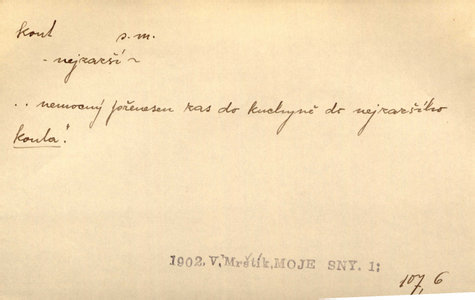 kout s. m.
- nejzazší ~
.. nemocný přenesen zas do kuchyně do nejzazšího
kouta."
1902. V. Mrštík, MOJE SNY. 1;
107, 6